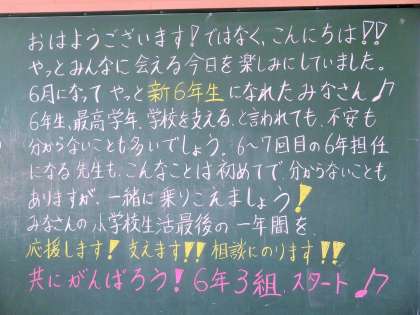 おはようございます!ではなく、こんにちは!!
やっとみんなに会える今日を楽しみにしていました。
6月になってやっと新6年生になれたみなさん♪
6年生、最高学年、学校を支える、と言われても、不安も
分からないことも多いでしょう。6〜7回目の6年担任
になる先生も、こんなことは初めてで、分からないことも
ありますが、一緒に乗りこえましょう!
みなさんの小学校生活最後の一年間を、
応援します!支えます!!相談にのります!!
共にがんばろう!6年3組、スタート♪